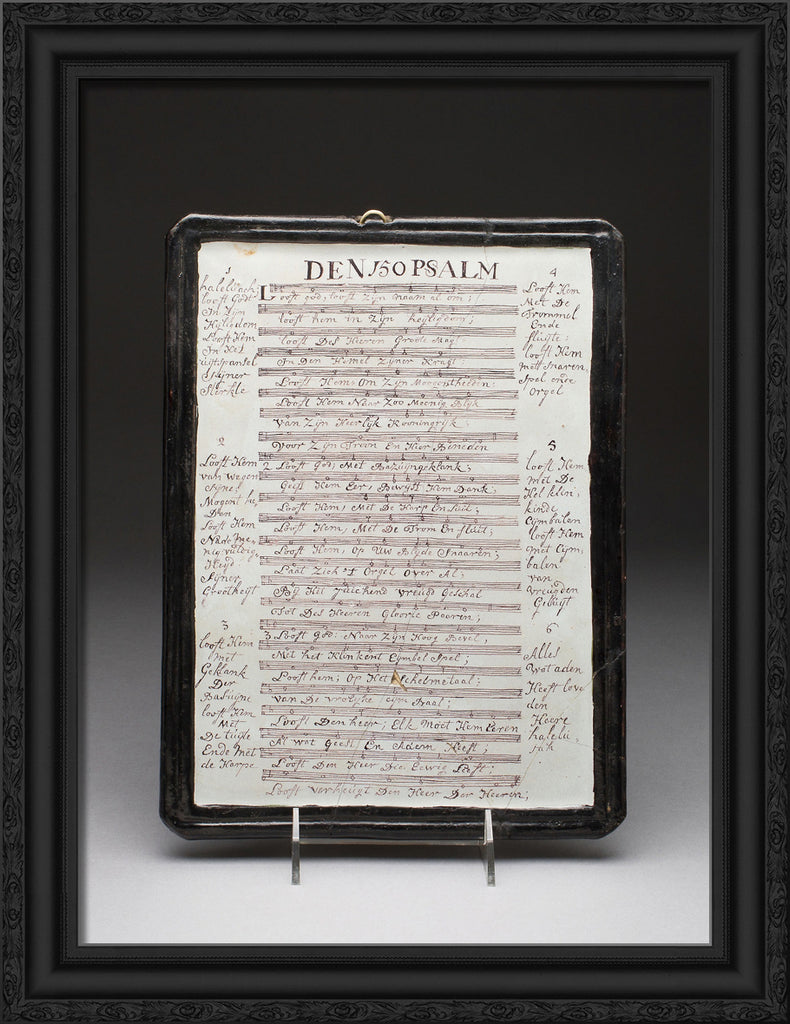 DEN 150 PSALM
1
looft Godt
In Zyn
Looft Hem
In Het
Sterkle
2
Looft Hem
van wegen
Looft Hem
3
looft Hem
Met
Geklank
Der
Basuyne
looft Hem
Met
Ende Met
de Harpe
Looft god, looft Zyn naam al om;
looft hem in Zyn
looft Des Heeren Groote Magt
In Den Hemel Zyner Kragt;
Looft Hem, Om Zyn Moogentheden;
Looft Hem Naar Zoo Meenig Blyk
van Zyn Heerlyk Kooningryk;
Voor Zyn Troon En Hier Beneden
2 Looft God, Met Bazuyngeklank;
Geeft Hem Eer, Bewyst Hem Dank;
Looft Hem, Met De Harp En Luit;
Looft Hem, Met De Trom En fluit;
Looft Hem, Op Uw Blyde Snaaren;
Laat Zich 't Orgel Over Al;
By Het Juichend vreugd Geschal
Tot Des Heeren Gloorie Paaren;
3 Looft God: Naar Zyn Hoog Bevel,
Met het Klinkent Cymbel Spel;
Looft hem; Op Het
van De
Looft Den heer; Elk Moet Hem Eeren
Al wat Geest En Adem Heeft;
Looft Den Heer Die Eewig Leeft;
Looft verheugt Den Heer Der Heeren;
4
Looft Hem
Met De
Trommel
Ende
fluyte:
looft Hem
Met Snaren,
Spel ende
Orgel
5
looft Hem
Met De
Hel klin;
kinde
Cymbalen
looft Hem
met Cym,
balen
van
vreugden
6
Alles
Wat aden
Heeft love
den
Heere